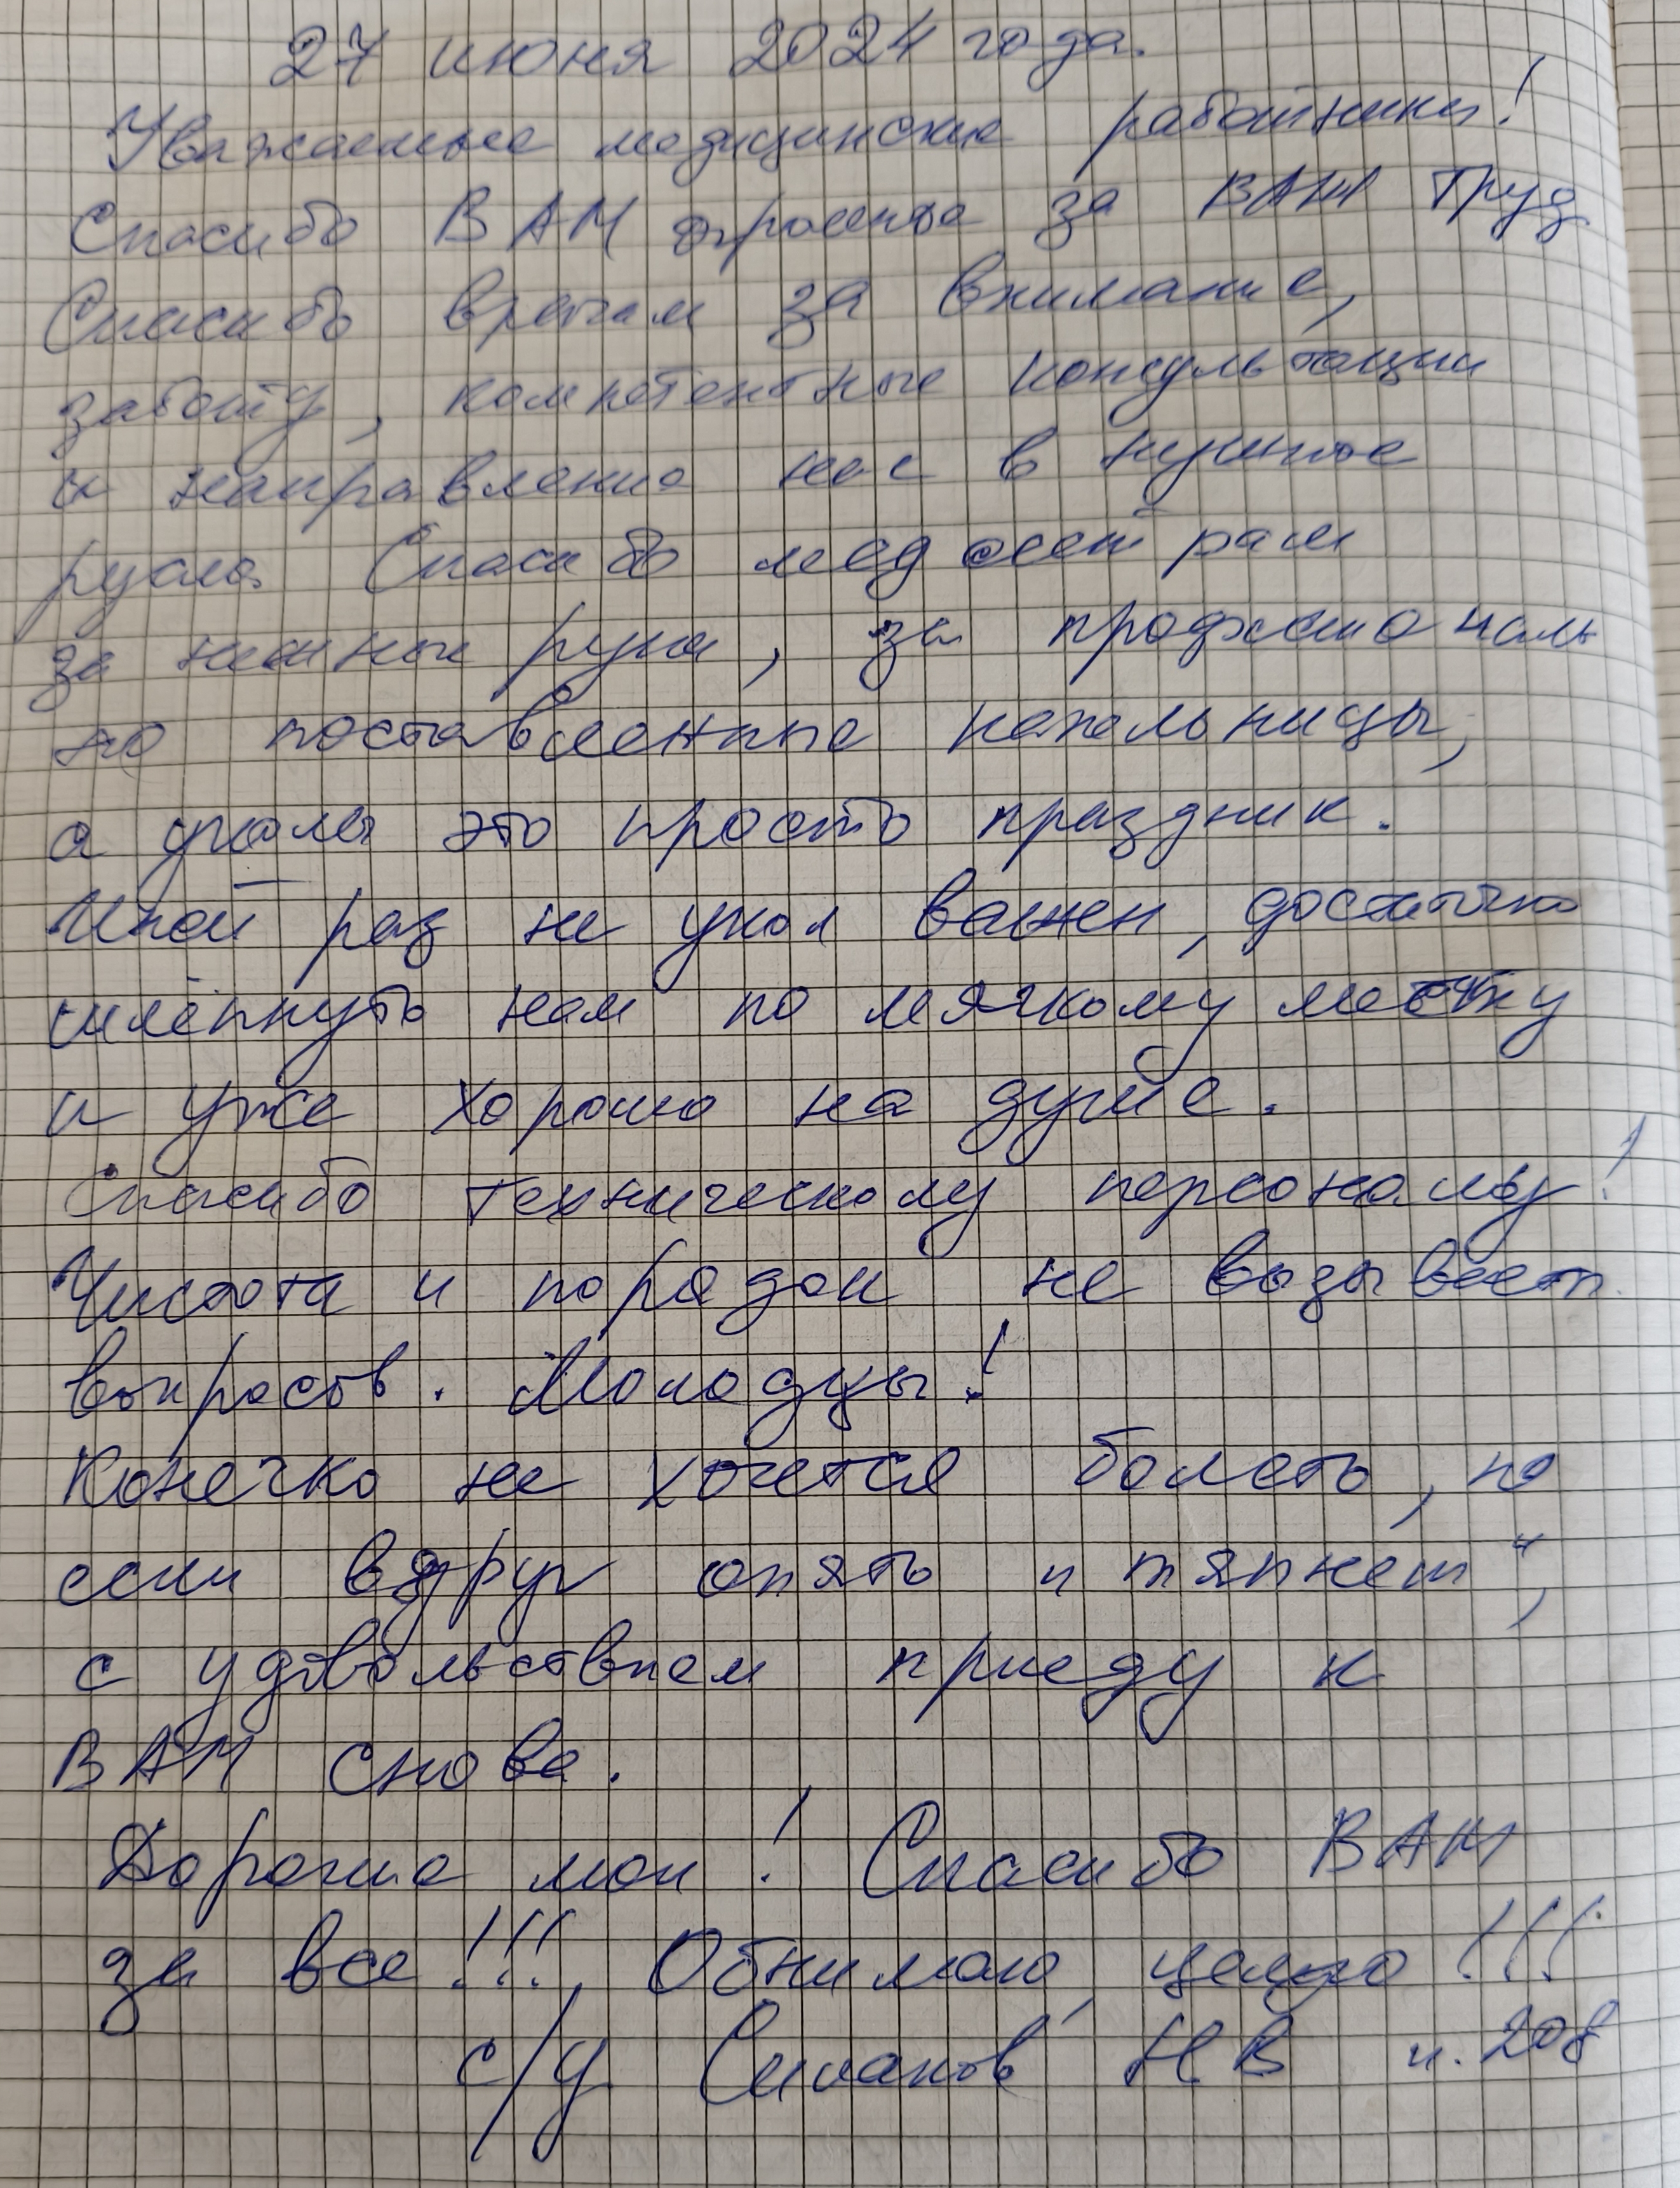 27 июня 2024 года.
Уважаемые медицинские работники!
Спасибо ВАМ огромное за ВАШ труд
Спасибо врачам за внимание,
заботу, компетентные консультации
и направление нас в нужное
русло. Спасибо медсестрам
за нежные руки, за
но поставленные капельницы,
а уколы это просто праздник.
Иной раз не укол важен, достаточно
шлёпнуть нам по мягкому месту
и уже хорошо на душе.
Спасибо техническому персоналу!
Чистота и порядок не вызывает
вопросов. Молодцы!
Конечно не хочется болеть, но
если вдруг опять "тяпнет",
с удовольствием приеду к
ВАМ снова.
Дорогие мои! Спасибо ВАМ
за все!!! Обнимаю, целую!!!
с/у НВ к. 208